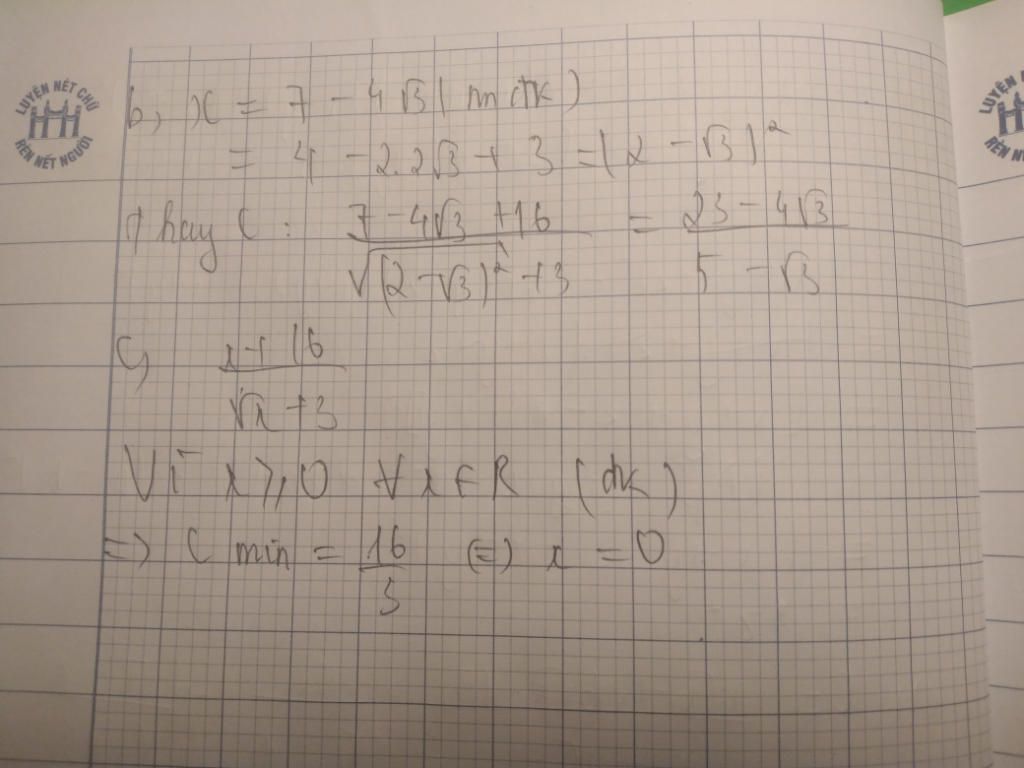 LUYỆN NÉT CHỮ
RÈN NẾT NGƯỜI
b, x = 7 - 4√3 (mđk)
= 4 - 2.2√3 + 3 = (2 - √3)²
Thay C: (7 - 4√3 + 16)/(√((2 - √3)²) + 3) = (23 - 4√3)/(5 - √3)
c, (x + 16)/(√x + 3)
Vì x ⩾ 0 ∀x ∈ R (đk)
=> C min = 16/3 (=) x = 0
LUYỆN N
RÈN NẾ